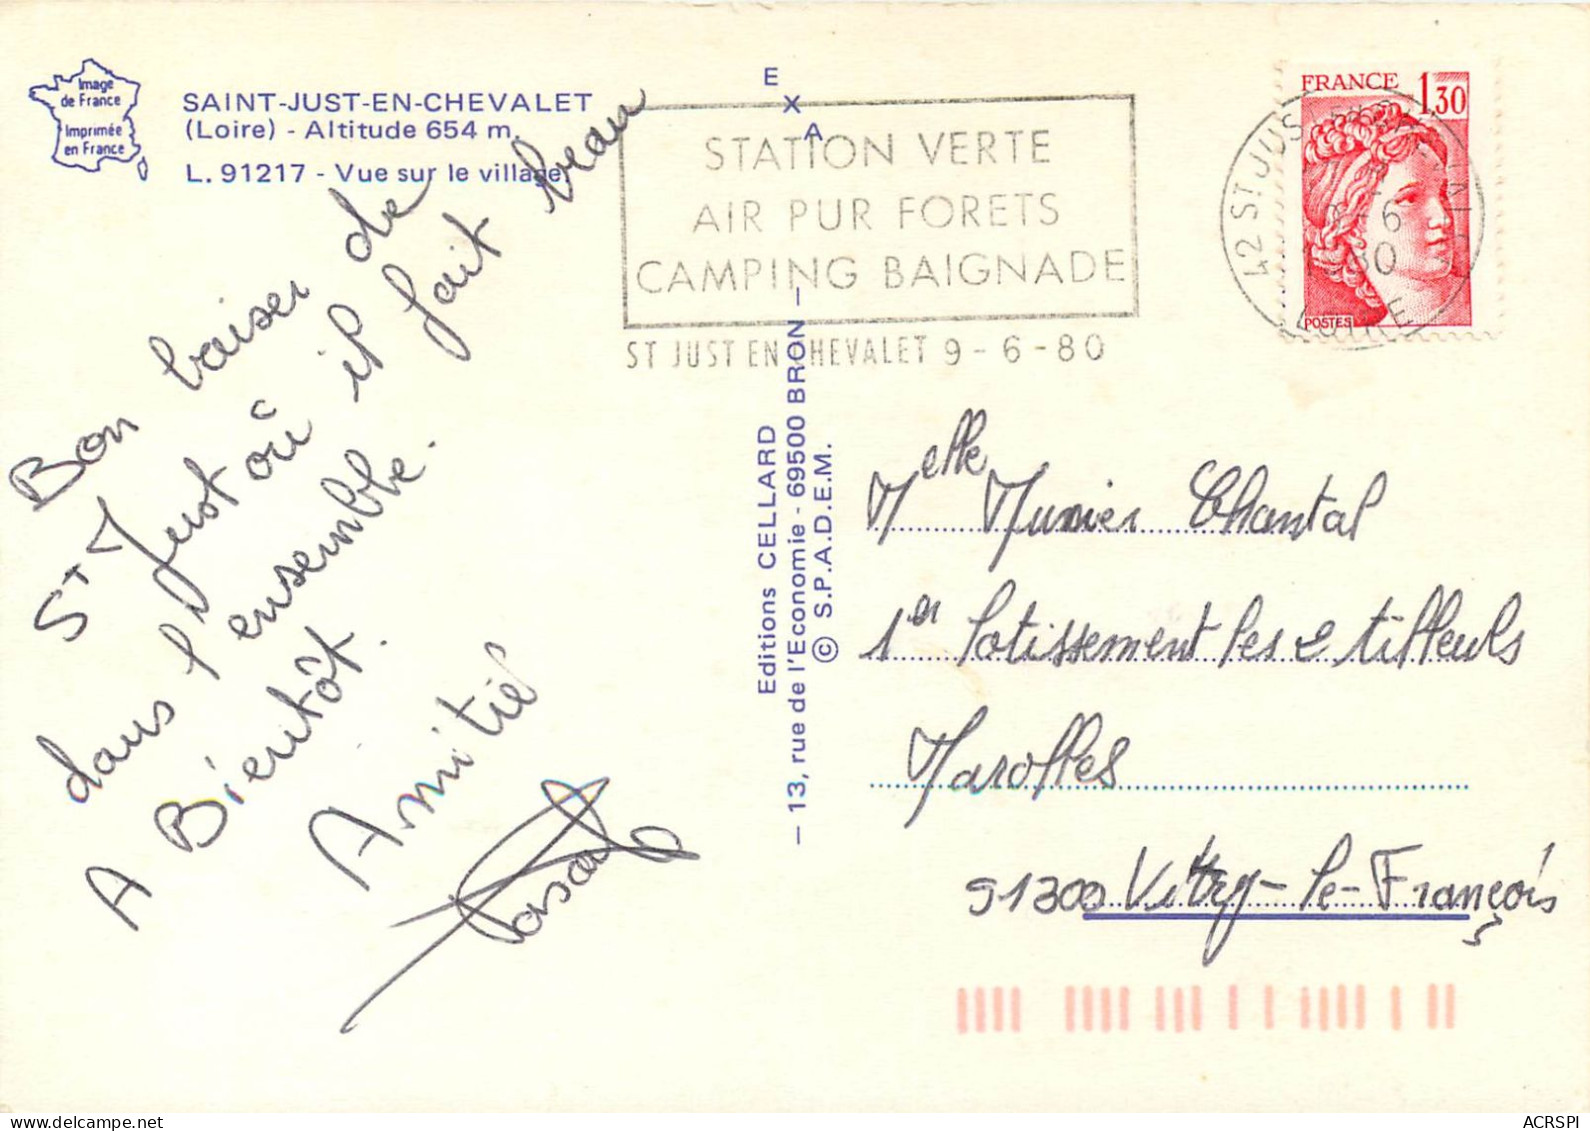 Image
de France
Imprimée
en France
SAINT-JUST-EN-CHEVALET
(Loire) - Altitude 654 m.
L. 91217 - Vue sur le village.
E
X
A
STATION VERTE
AIR PUR FORETS
CAMPING BAIGNADE
ST JUST EN CHEVALET 9-6-80
FRANCE 1,30
POSTES
42 ST JUST
-6
80
LOIRE
Bon baiser de
St Just où il fait beau
dans l'ensemble.
A Bientôt.
Amitié
Pascal
Editions CELLARD
— 13, rue de l'Economie - 69500 BRON —
© S.P.A.D.E.M.
Melle Munier Chantal
1er lotissement les 2 tilleuls
Marolles
51300 Vitry-le-Françóis
ACRSPI